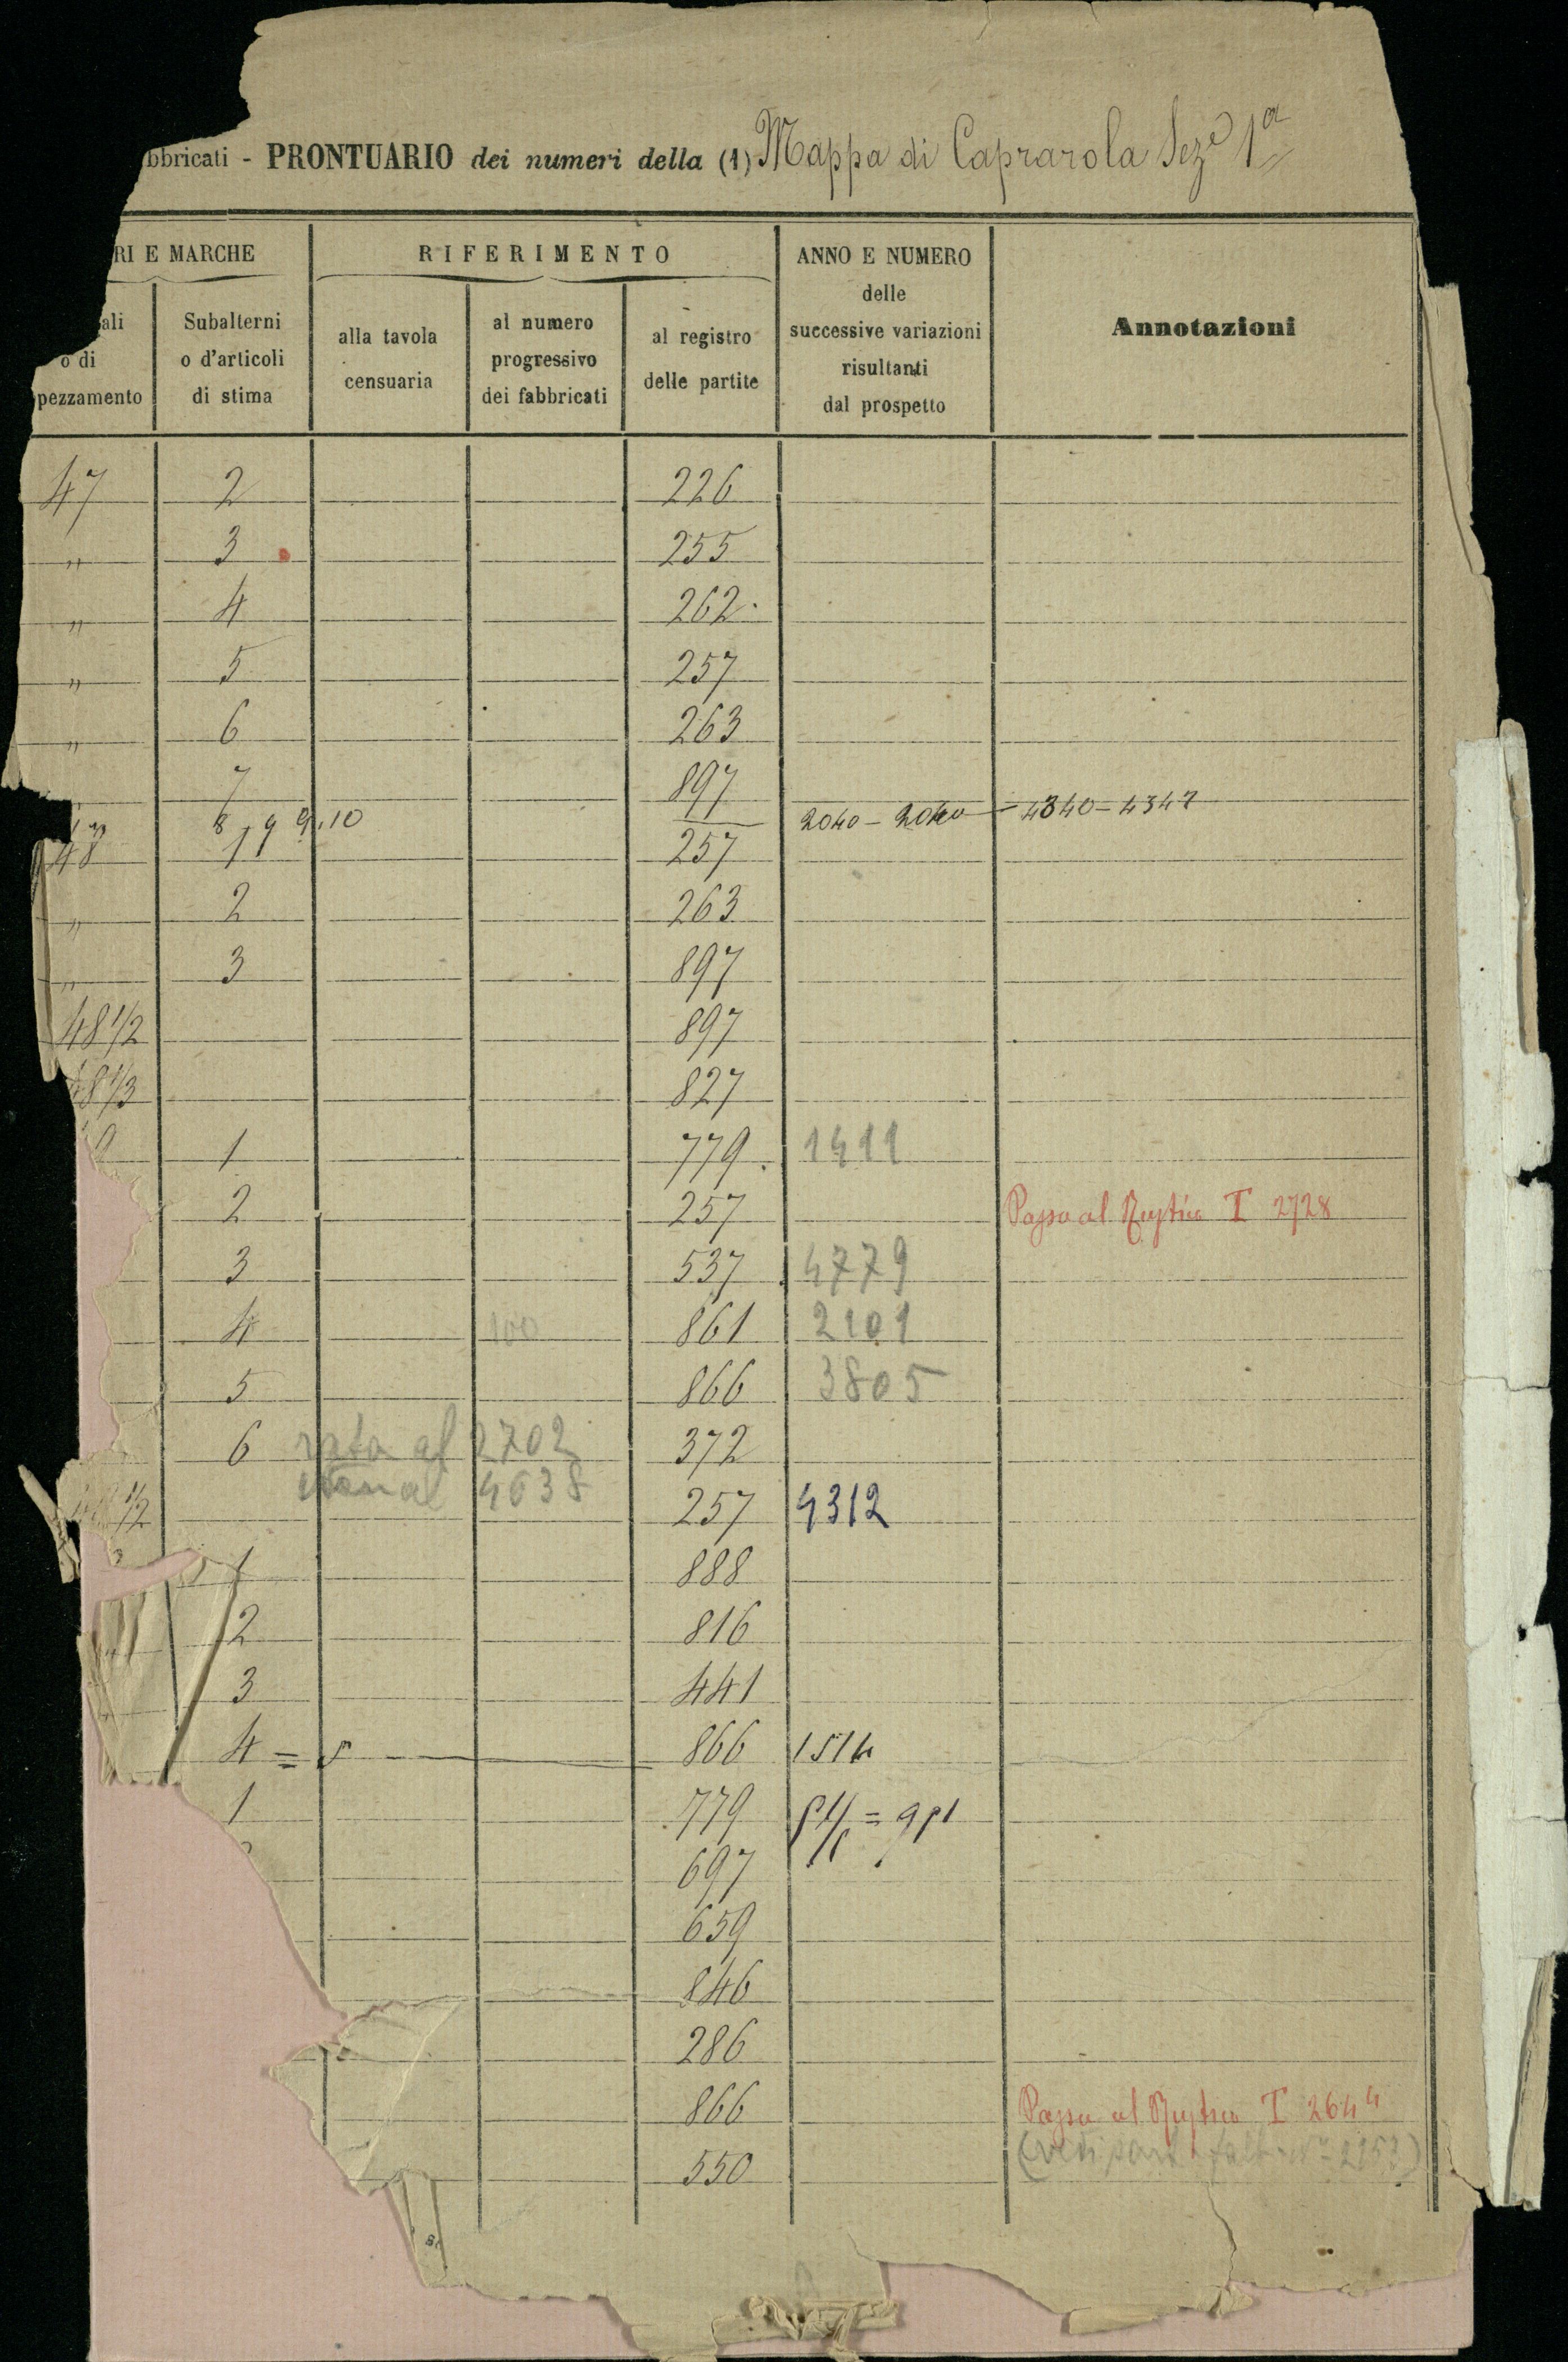 bbricati - PRONTUARIO dei numeri della (1) Mappa di Caprarola Sez.e 1a
RI E MARCHE RIFERIMENTO ANNO E NUMERO delle successive variazioni risultanti dal prospetto Annotazioni
ali o di pezzamento Subalterni o d'articoli di stima alla tavola censuaria al numero progressivo dei fabbricati al registro delle partite
47 2 226
" 3 255
" 4 262
" 5 257
" 6 263
7 897
8, 9 9,10 2040 - 2040 - 4340 = 4347
48 1 257
" 2 263
" 3 897
48 1/2 897
48 1/3 827
9 1 779 1411
2 257 Passa al Rustico I 2728
3 537 4779
4 100 861 2101
5 866 3805
6 resta al 2702 372
4638
1/2 257 4312
1 888
2 816
3 441
4 = 5 866 1514
1 779
697
659
846
286
866 Passa al Rustico I 2644
550